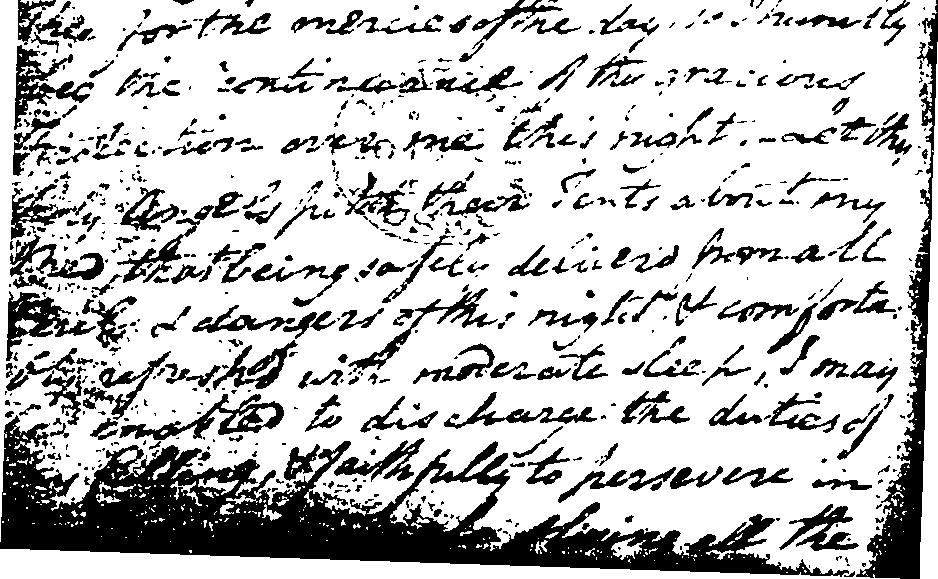 thee for the mercies of the day, so I humbly
beg the continuance of thy gracious
protection over me this night. Let thy
holy Angels pitch their Tents about my
bed, that being safely deliverd from all
perils & dangers of this night & comforta
bly refreshd with moderate sleep, I may
be enabled to discharge the duties of
my calling, & faithfully to persevere in
all the